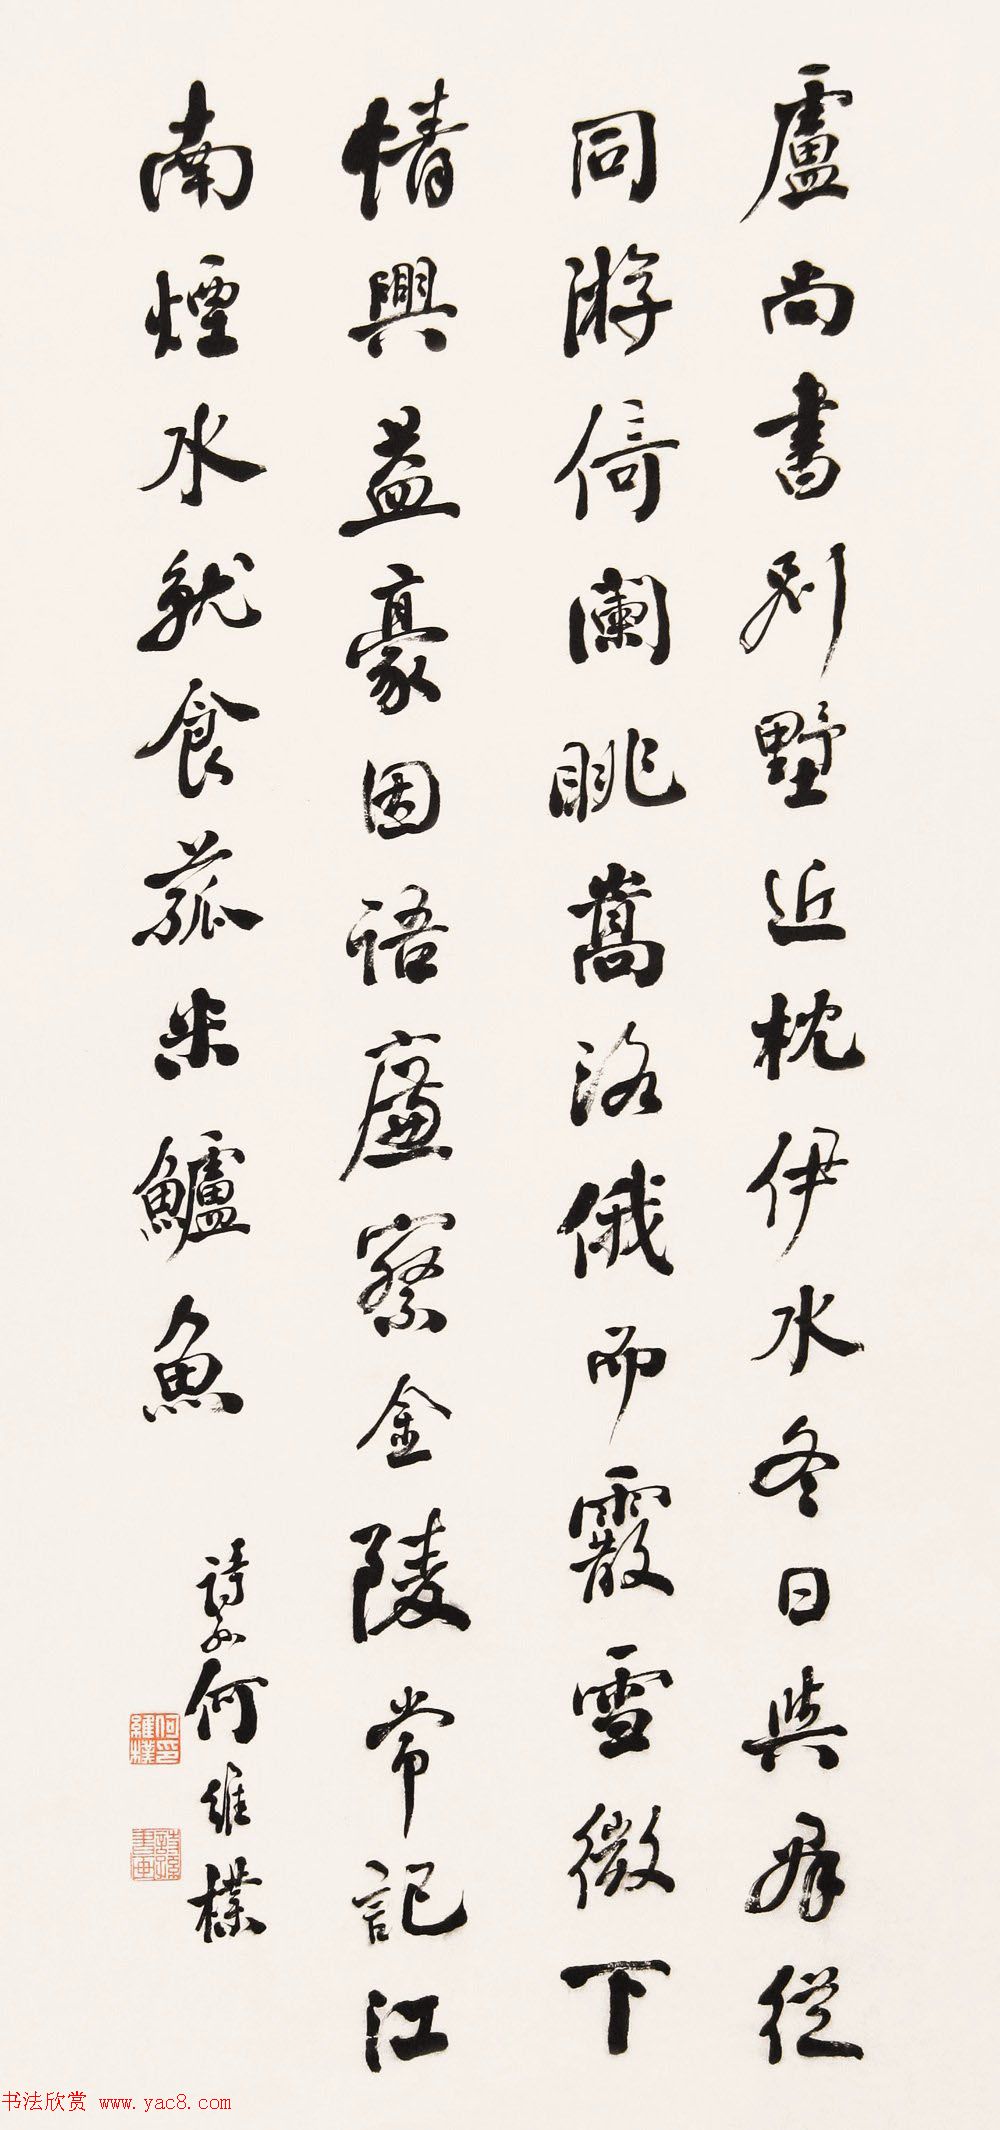 盧尚書別墅近枕伊水冬日與群從
同游倚闌眺嵩洛俄而霰雪微下
情興益豪因語廉察金陵常記江
南煙水就食菰米鱸魚
詩孫何維樸
何維樸印
詩孫書画
书法欣赏 www.yac8.com